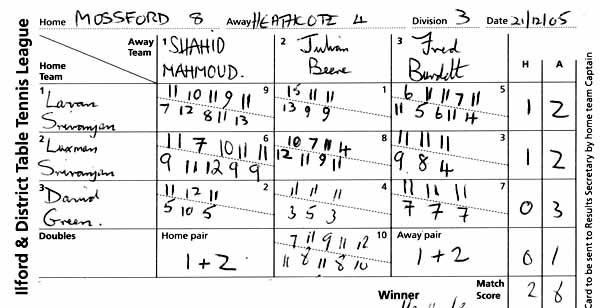 Ilford & District Table Tennis League
Home MOSSFORD 8 Away HEATHCOTE 4 Division 3 Date 21/12/05
Away Team 1 SHAHID MAHMOUD. 2 Julian Beere 3 Fred Burdett H A
Home Team
1 Lavan Srivanjan
11 10 11 9 11 9
7 12 8 11 13
15 11 11 1
13 9 9
6 11 11 7 11 5
11 5 6 11 4
1 2
2 Luxman Srivanjan
11 7 10 11 11 6
9 11 12 9 9
10 7 11 4 8
12 11 9 11
11 11 11 3
9 8 4
1 2
3 David Green.
11 12 11 2
5 10 5
11 11 11 4
3 5 3
11 11 11 7
7 7 7
0 3
Doubles Home pair 1+2
7 11 9 11 12 10
11 8 11 8 10
Away pair 1+2
0 1
Winner Match Score 2 8
Card to be sent to Results Secretary by home team Captain